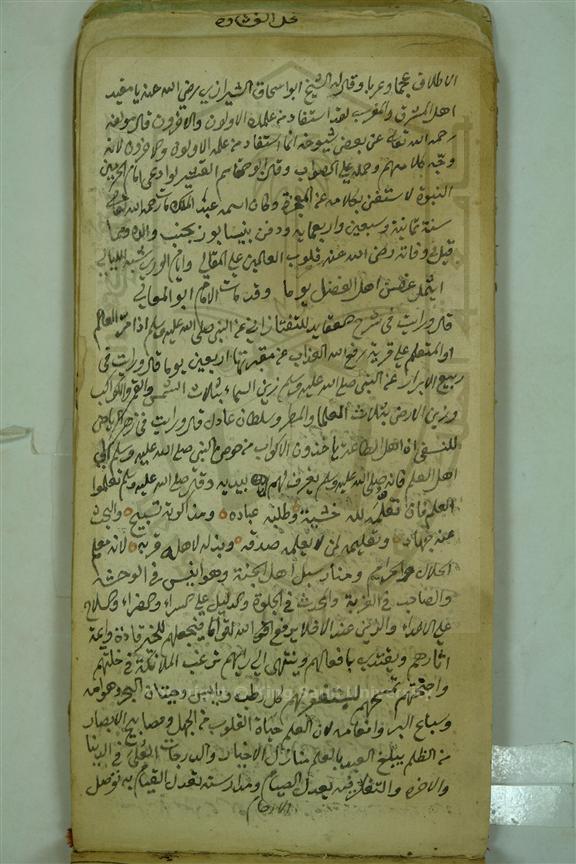 الاطلاق عجما وعربا وقال له الشيخ ابو اسحاق الشيرازي رضي الله عنه يا مفيد
اهل المشرق والمغرب لقد استفاد من علمك الاولون والاخرون قال مولفه
رحمه الله تعالى عن بعض شيوخه انما استفاد من علمه الاولون والاخرون لانه
وجه كلامهم وحمله على الصواب وقال ابو القاسم القشيري لو ادعى امام الحرمين
النبوة لاستغنى بكلامه عن المعجزة وكان اسمه عبد الملك مات رحمه الله تعالى
سنة ثمانية وسبعين واربعماية ودفن بنيسابور بجنب والده ومما
قيل وفاته رضي الله عنه قلوب العالمين على المقالي وايام الورى شبه الليالي
ايثمر غصن اهل الفضل يوما وقد مات الامام ابو المعالي
قال ورايت في شرح العقايد للتفتازاني عن النبي صلى الله عليه وسلم اذا مر العالم
او المتعلم على قرية يرفع الله العذاب عن مقبرتها اربعين يوما قال ورايت في
ربيع الابرار عن النبي صلى الله عليه وسلم زين السماء بثلاث الشمس والقمر والكواكب
وزين الارض بثلاث العلماء والمطر وسلطان عادل قال ورايت في زهر الرياض
للنسفي ان اهل الطاعة ياخذون الاكواب من حوض النبي صلى الله عليه وسلم الى
اهل العلم فانه صلى الله عليه وسلم يغرف لهم بيديه وقال صلى الله عليه وسلم تعلموا
العلم فان تعلمه لله خشية وطلبه عبادة ومذاكرته تسبيح والبحث
عنه جهاد وتعليمه لمن لا يعلمه صدقه وبذله لاهله قربه لانه معالم
الحلال والحرام ومنار سبل اهل الجنة وهو انيس في الوحشة
والصاحب في الغربة والمحدث في الخلوة والدليل على السراء والضراء والسلاح
على الاعداء والزين عند الاخلاء يرفع الله اقواما فيجعلهم للخير قادة وائمة
اثارهم ويقتدى بافعالهم وينتهى الى رايهم ترغب الملائكة في خلتهم
وباجنحتهم تمسحهم ليستغفر لهم كل رطب ويابس وحيتان البحر وهوامه
وسباع البر وانعامه لان العلم حياة القلوب من الجهل ومصابيح الابصار
من الظلم يبلغ العبد بالعلم منازل الاخيار والدرجات العلى في الدنيا
والاخرة والتفكر فيه يعدل الصيام ومدارسته تعدل القيام به توصل
الارحام